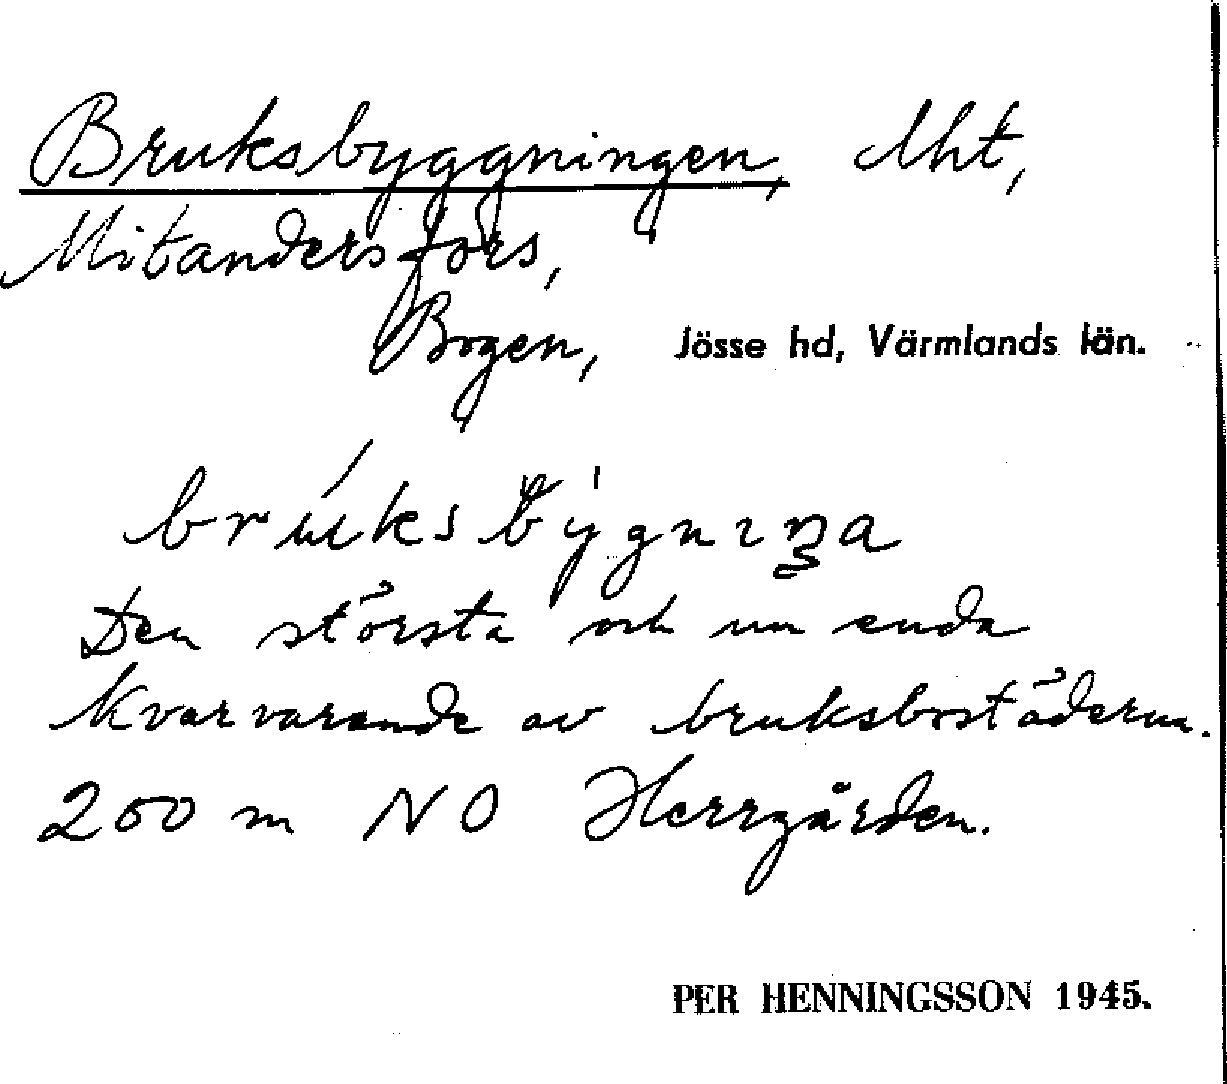 Bruksbyggningen, lht,
Mitandersfors,
Bogen, Jösse hd, Värmlands län.
Den största och nu enda
kvarvarande av bruksbostäderna.
200 m NO Herrgården.
PER HENNINGSSON 1945.